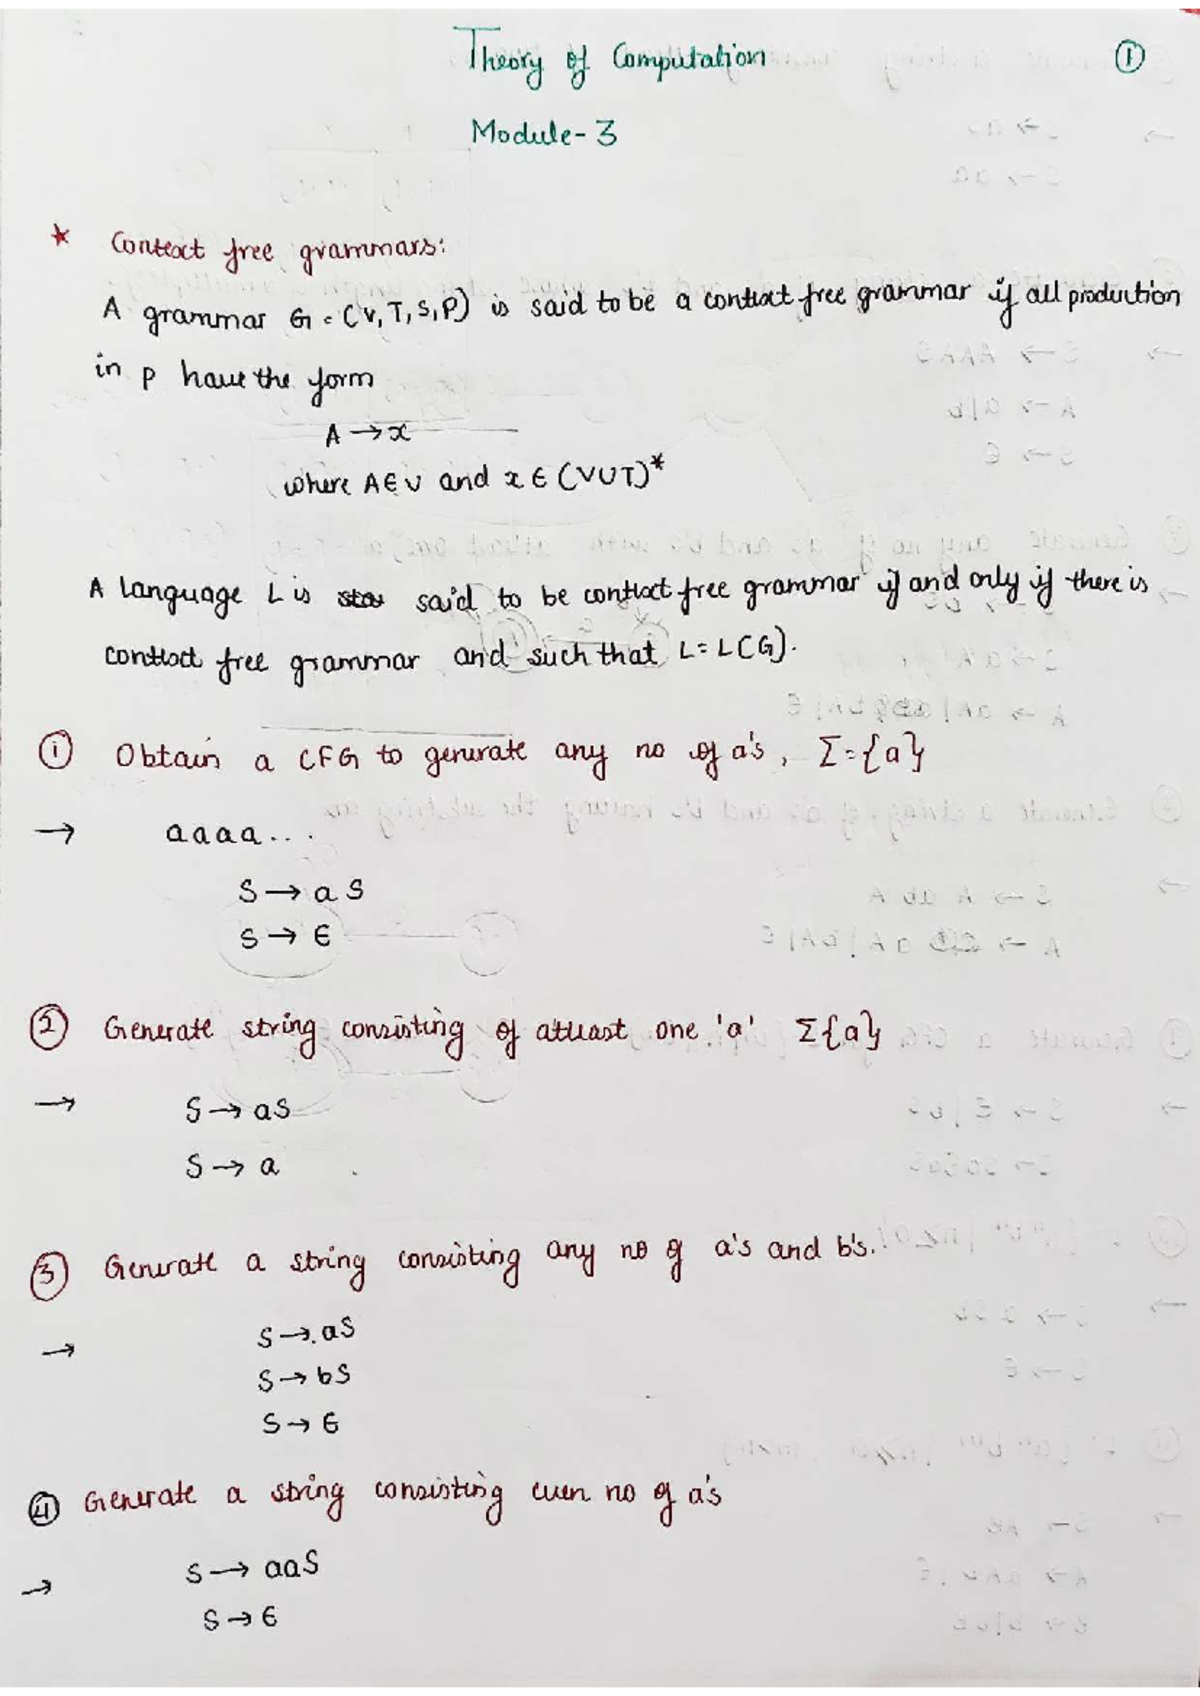 Theory of Computation
①
Module-3
* Context free grammars:
A grammar G = (V, T, S, P) is said to be a context free grammar if all production
in P have the form
A → x
where A ∈ V and x ∈ (VUT)*
A language L is said to be context free grammar if and only if there is
context free grammar and such that L = L(G).
① Obtain a CFG to generate any no of a's, Σ = {a}
→ aaaa...
S → aS
S → ϵ
② Generate string consisting of atleast one 'a' Σ{a}
→ S → aS
S → a
③ Generate a string consisting any no of a's and b's.
→ S → aS
S → bS
S → ϵ
④ Generate a string consisting even no of a's
→ S → aaS
S → ϵ